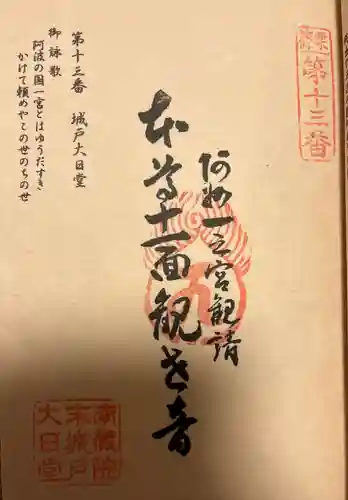 第十三番
阿州一之宮観請
本尊十一面観世音
第十三番　城戸大日堂
御詠歌
阿波の国一宮とはゆうだすき
かけて頼めやこの世のちの世
大日堂